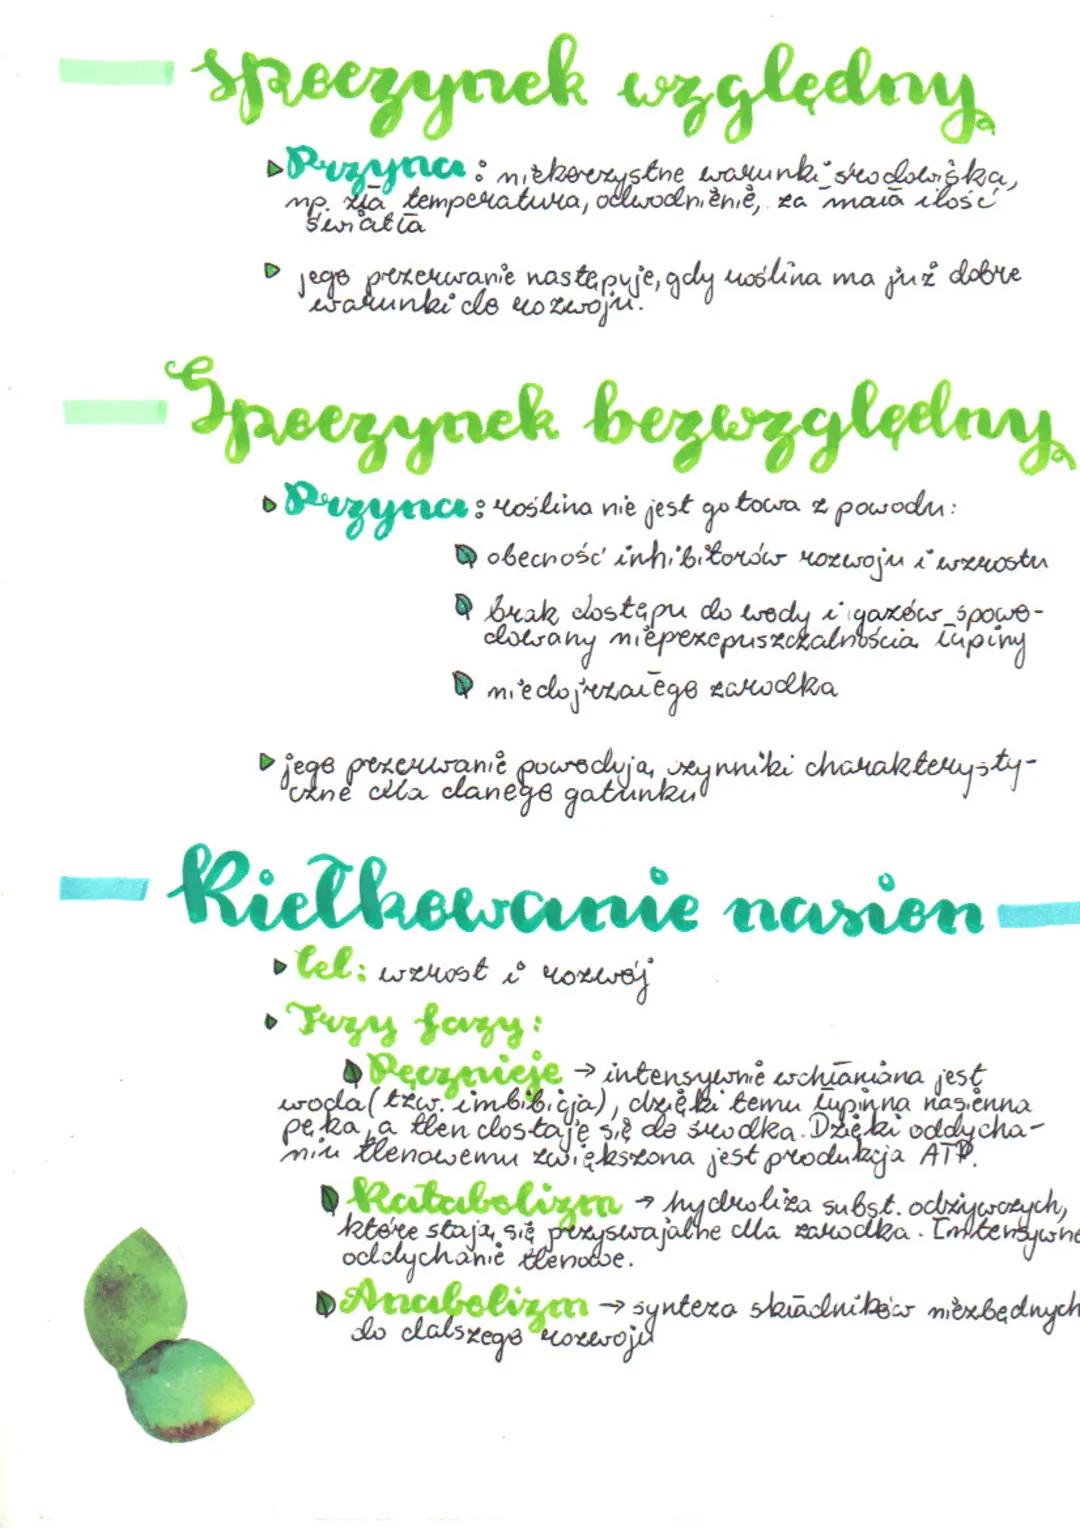 spoczynek względny
Przyna: niekorzystne warunki środowiska,
np. zła temperatura, odwodnienie, za mała ilość
światła
jego przerwanie następuje, gdy roślina ma już dobre
warunki do rozwoju.
Spoczynek bezwzględny
Przyna: roślina nie jest gotowa z powodu:
obecność inhibitorów rozwoju i wzrostu
brak dostępu do wody i gazów spowo-
dowany nieprzepuszczalnością łupiny
niedojrzałego zarodka
jego przerwanie powodują czynniki charakterysty-
czne dla danego gatunku
Kiełkowanie nasion
Cel: wzrost i rozwój
Trzy fazy:
Pęcznieje → intensywnie wchłaniana jest
woda (tzw. imbibicja), dzięki temu łupinna nasienna
pęka, a tlen dostaje się do środka. Dzięki oddycha-
niu tlenowemu zwiększona jest produkcja ATP.
Katabolizm → hydroliza subst. odżywczych,
które stają się przyswajalne dla zarodka. Intensywne
oddychanie tlenowe.
Anabolizm → synteza składników niezbędnych
do dalszego rozwoju